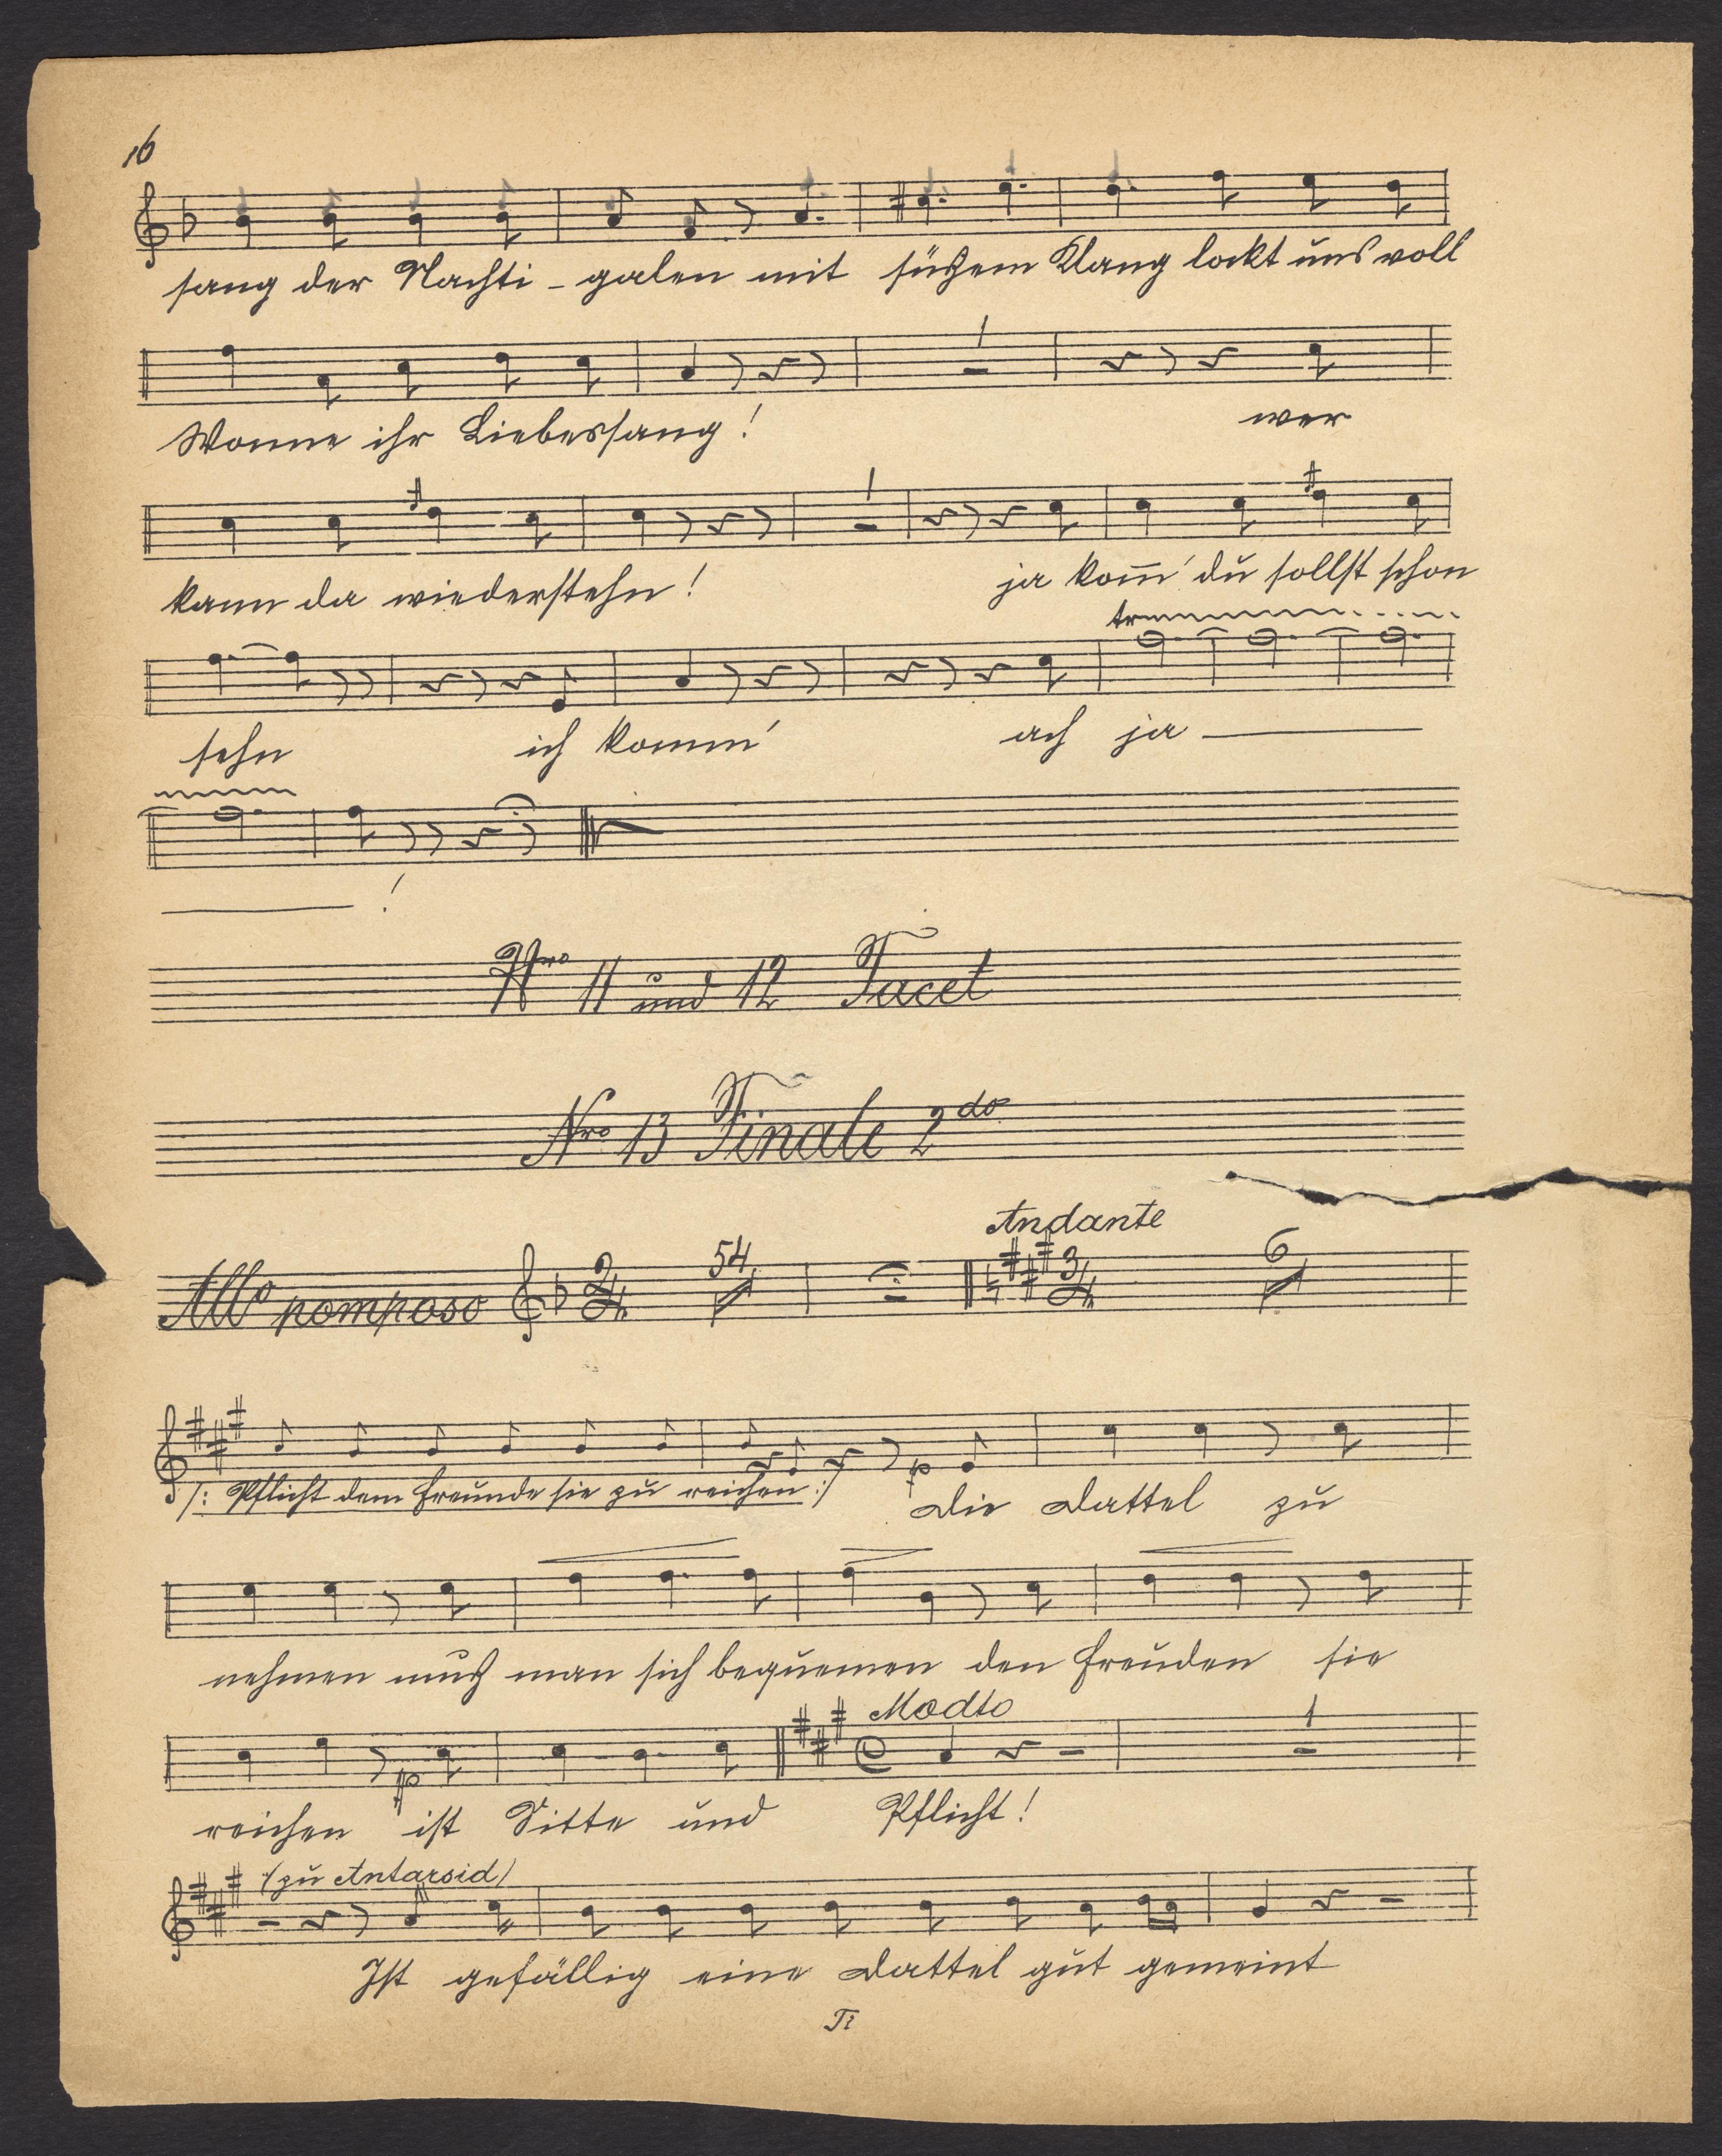 16
sang der Nachti - galen mit süßem Klang lockt uns voll
Wonne ihr Liebessang! wer
kann da wiederstehn! ja kom̅' du sollst schon
tr
sehn ich komm' ach ja
!
Nro 11 und 12 Tacet
Nro 13 Finale 2do
Andante
Allo pomposo 2/4 54 3/4 6
/: Pflicht dem Freunde sie zu reichen :/ p Die Dattel zu
nehmen muß man sich bequemen den Freuden sie
Modto
1
p
reichen ist Sitte und Pflicht!
(zu Antarsid)
Ist gefällig eine Dattel gut gemeint